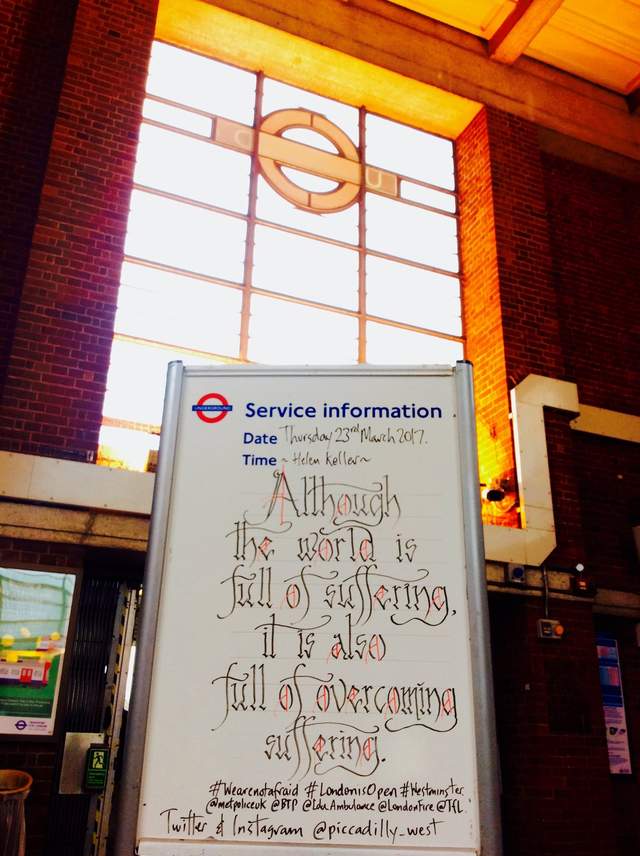 UNDERGROUND
Service information
Date Thursday 23rd March 2017.
Time ~Helen Keller~
Although
the world is
full of suffering,
it is also
full of overcoming
suffering.
#Wearenotafraid #LondonisOpen #Westminster
@metpoliceuk @BTP @LdnAmbulance @LondonFire @TFL
Twitter & Instagram @piccadilly_west